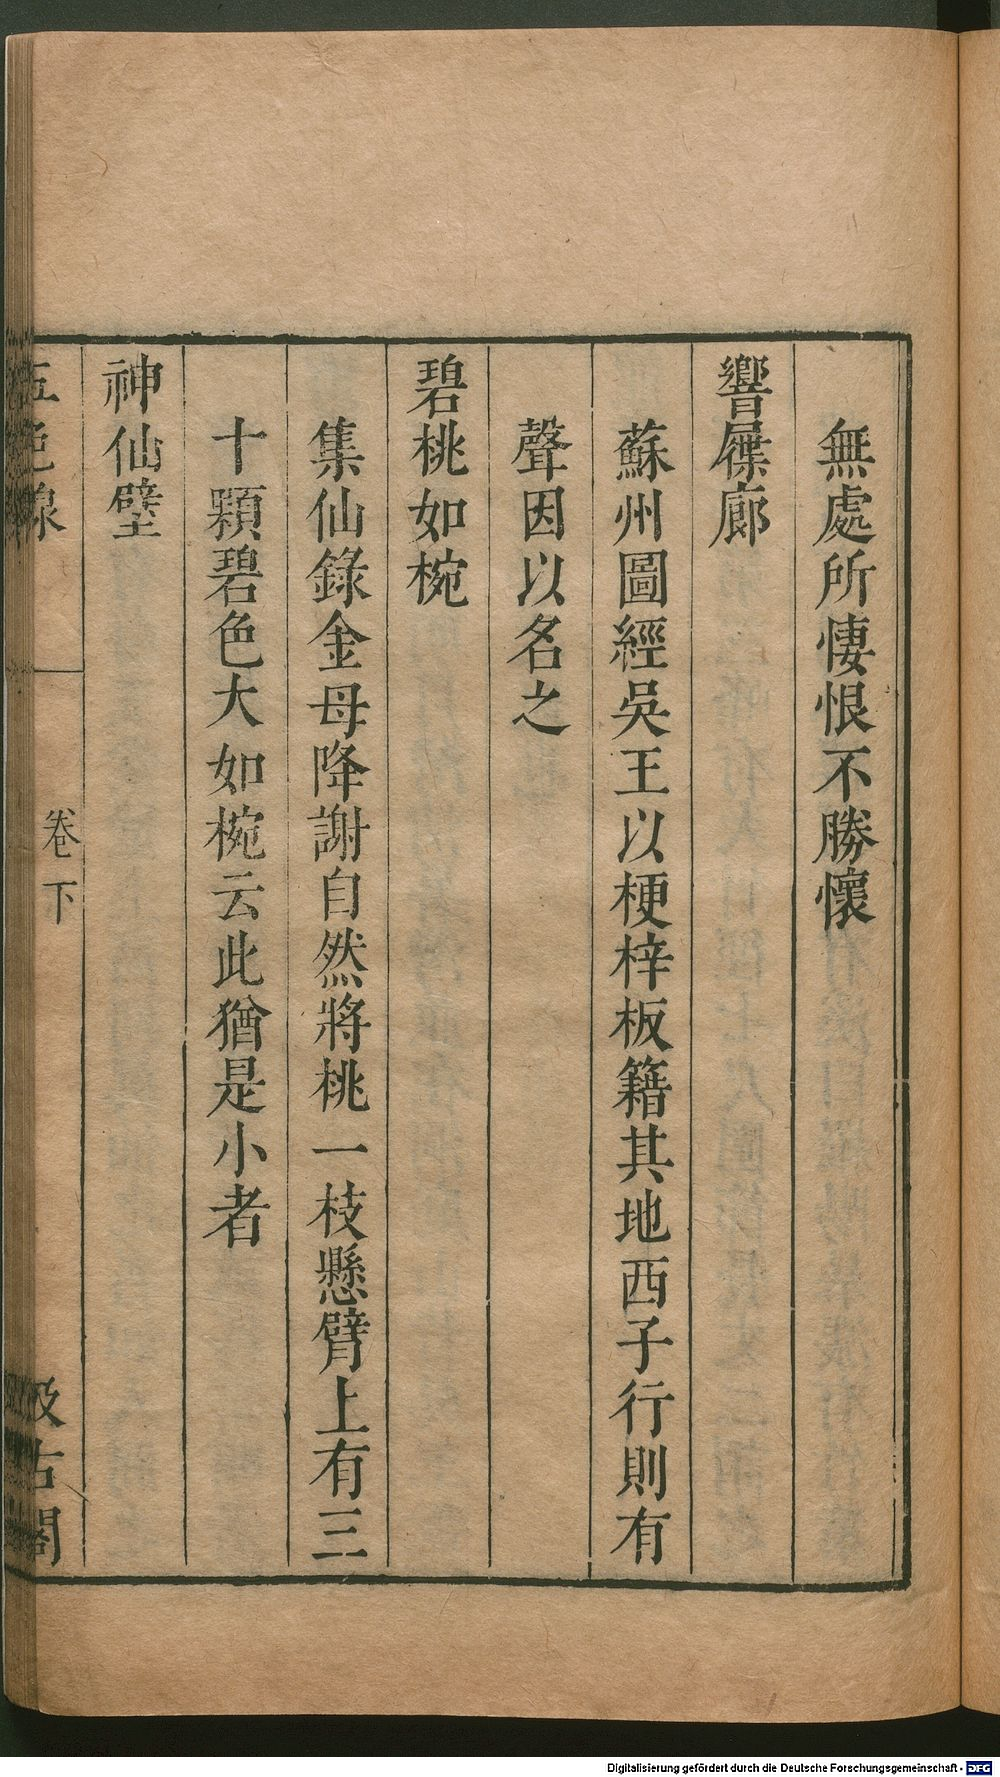 無處所悽恨不勝懷
響屧廊
蘇州圖經吳王以梗梓板籍其地西子行則有
聲因以名之
碧桃如椀
集仙錄金母降謝自然將桃一枝懸臂上有三
十顆碧色大如椀云此猶是小者
神仙壁
五色線
卷下
汲古閣
Digitalisierung gefördert durch die Deutsche Forschungsgemeinschaft - DFG